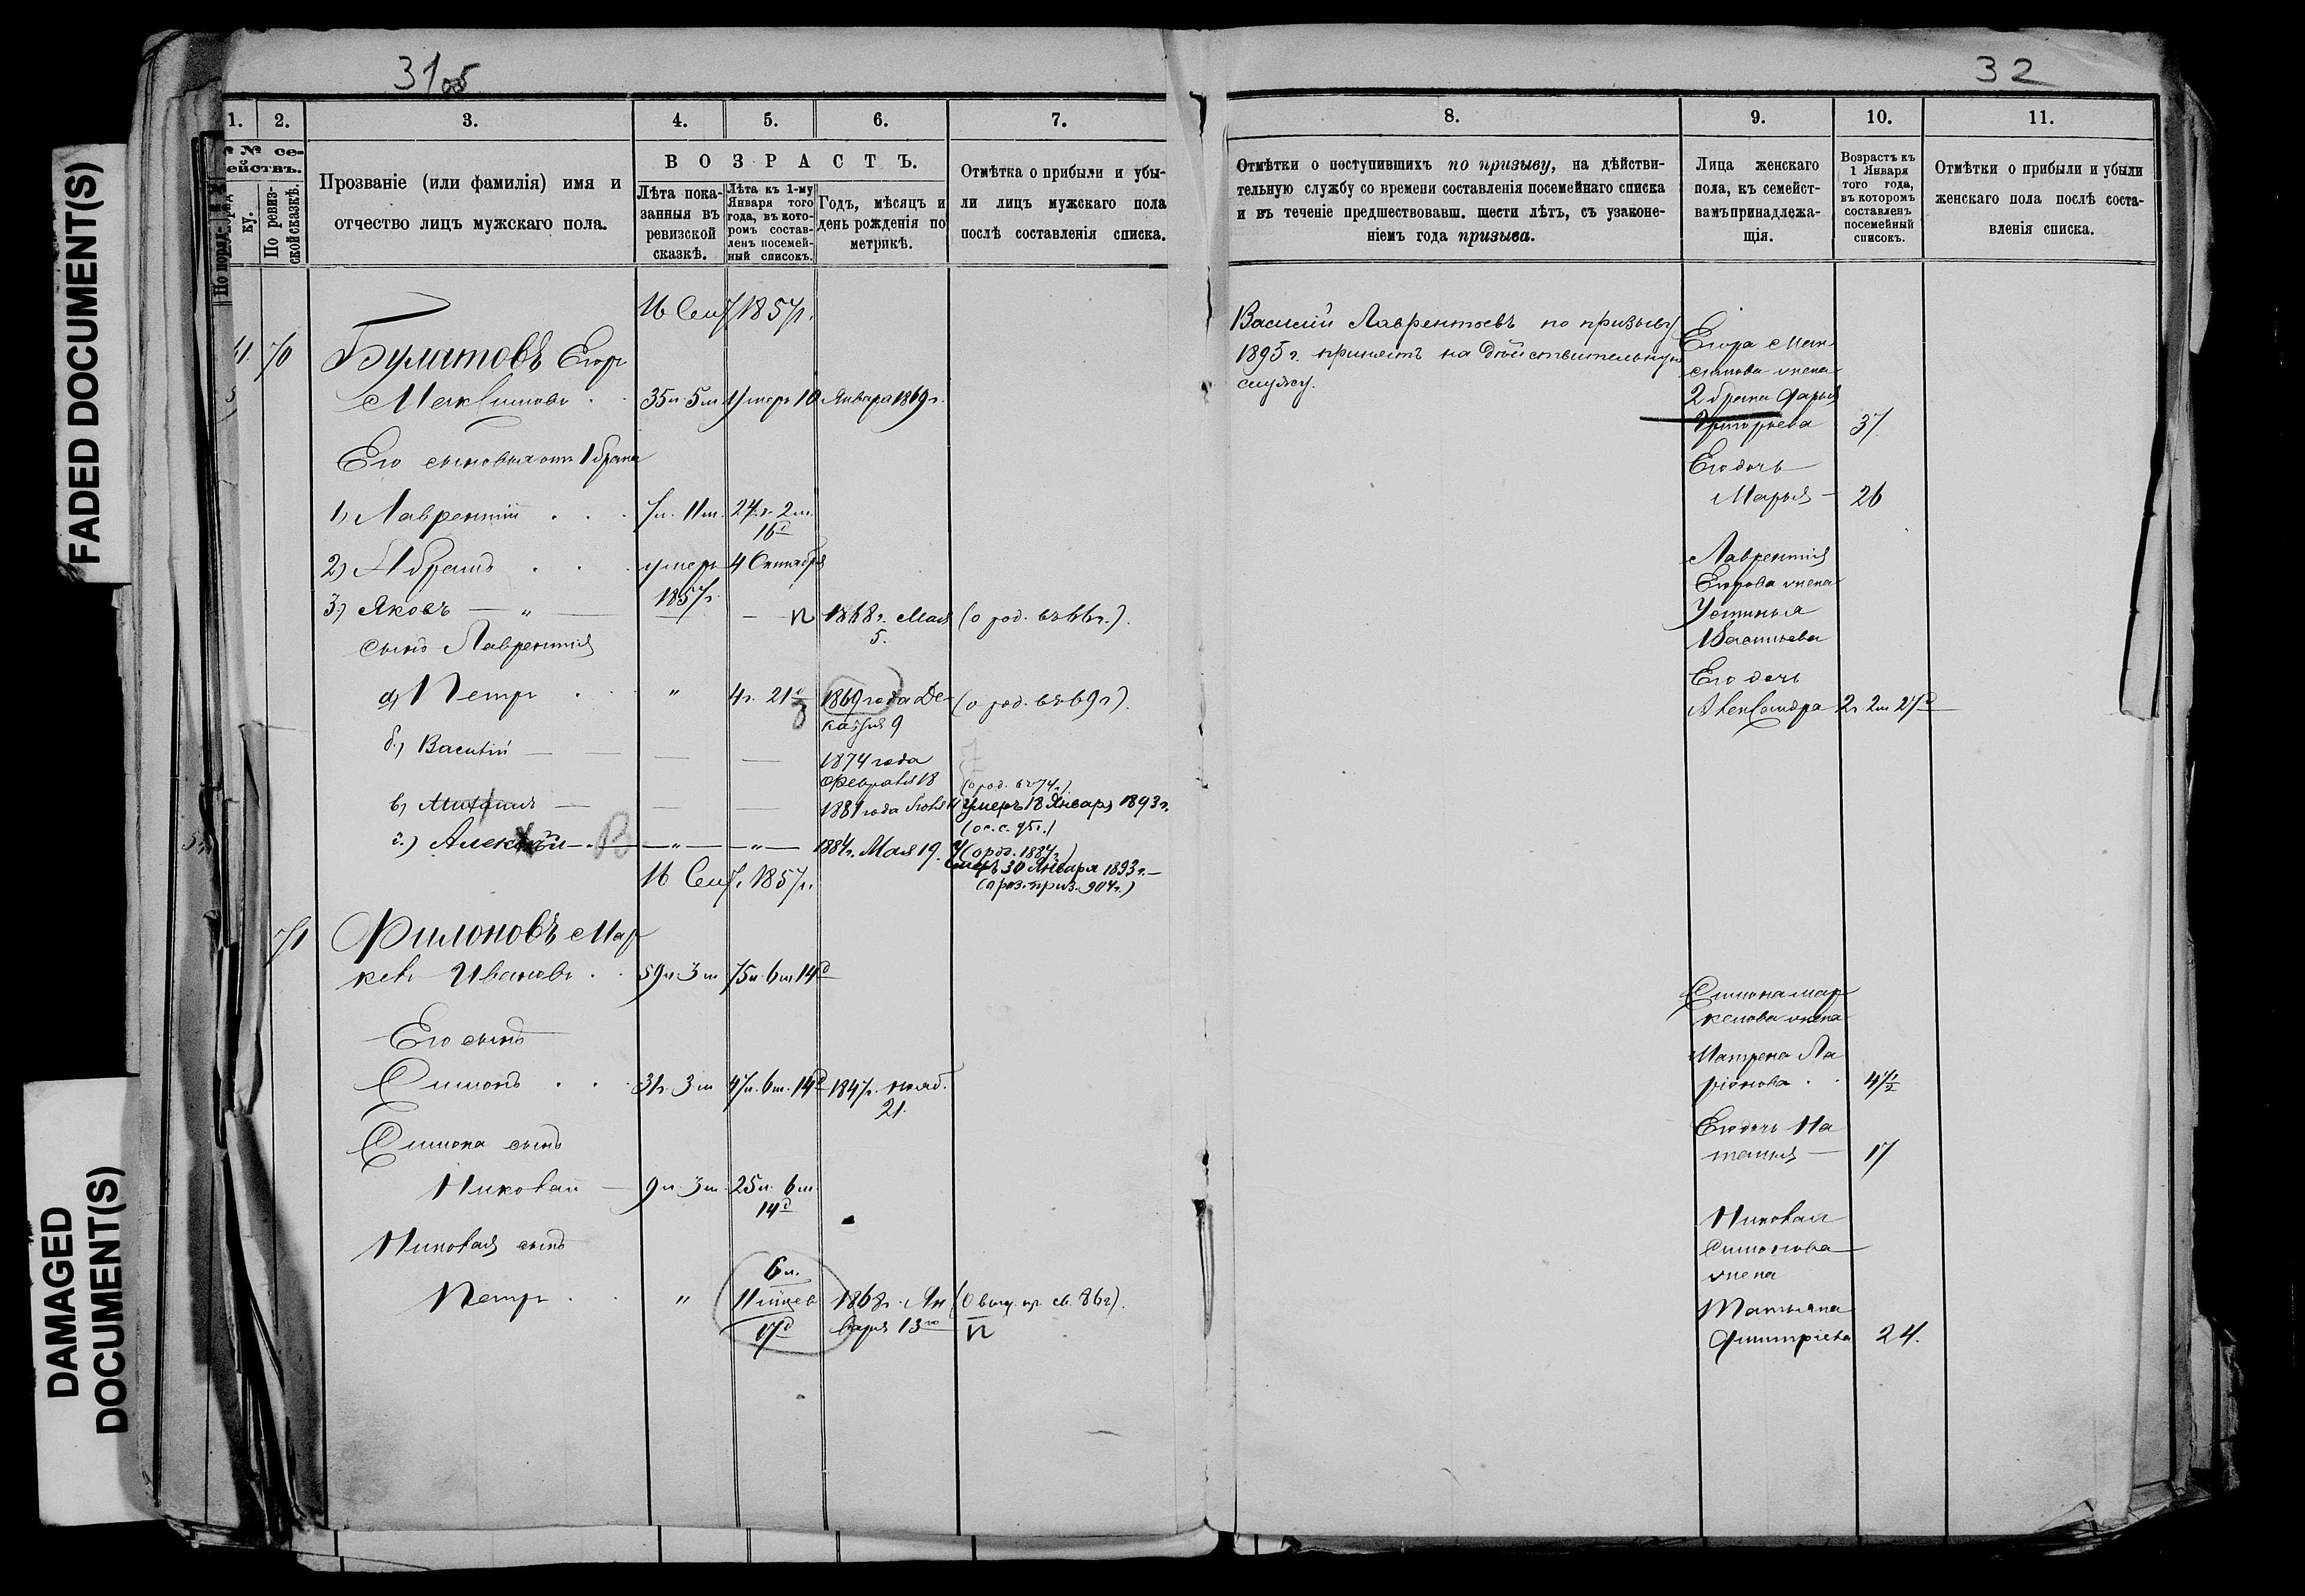 31об
32
FADED DOCUMENT(S)
DAMAGED
DOCUMENT(S)
1. 2. 3. 4. 5. 6. 7.
№№ се-
ействъ.
По поряд-
ку.
По ревиз-
ской сказкѣ.
Прозваніе (или фамилія) имя и
отчество лицъ мужскаго пола.
ВОЗРАСТЪ.
Лѣта пока-
занныя въ
ревизской
сказкѣ.
Лѣта къ 1-му
Января того
года, въ кото-
ромъ состав-
ленъ посемей-
ный списокъ.
Годъ, мѣсяцъ и
день рожденія по
метрикѣ.
Отмѣтка о прибыли и убы-
ли лицъ мужскаго пола
послѣ составленія списка.
16 Сент. 1857г.
70 Булатовъ Егоръ
Максимовъ 35л. 5м. умеръ 10 Января 1869г.
Его сыновья отъ 1 брака
1) Лаврентій 7л. 11м. 27л. 2м.
16д
2) Абрамъ умеръ 4 Октября
1857г.
3) Яковъ — „ — 1868г. Мая (о род. въ 66г.).
5.
Сынъ Лаврентія
а) Петръ „ 4г. 21д 1869 года Де- (о род. въ 69г).
кабря 9
б) Василій — — — 1874 года
Февраля 18 (о род. въ 74г.)
в) — — — 1881 года Умеръ 18 Января 1893г.
г.) Алексѣй — „ — „ — 1884г. Мая 19. (о род. 1884г.)
умеръ 30 Января 1893г. —
16 Сент. 1857г.
71 Филоновъ Мар
келъ Ивановъ 59л. 3м. 75л. 6м. 14д
Его сынъ
Симонъ 31г. 3м 47л. 6м. 14д 1847г. нояб.
21.
Симона сынъ
Николай — 9л. 3м. 25л. 6м.
14д
Николая сынъ
6л.
Петръ „ 11 1868г. Ян
17д варя 13го
8. 9. 10. 11.
Отмѣтки о поступившихъ по призыву, на дѣйстви-
тельную службу со времени составленія посемейнаго списка
и въ теченіе предшествовавш. шести лѣтъ, съ узаконе-
ніемъ года призыва.
Лица женскаго
пола, къ семейст-
вамъ принадлежа-
щія.
Возрастъ къ
1 Января
того года,
въ которомъ
составленъ
посемейный
списокъ.
Отмѣтки о прибыли и убыли
женскаго пола послѣ соста-
вленія списка.
Василій Лаврентьевъ по призыву
1895г. принятъ на дѣйствительную
службу.
Егора Мак
симова жена
2 брака Дарья
Григорьева 37.
Его дочь
Марья — 26
Лаврентія
Егорова жена
Устинья
Васильева
Его дочь
Александра 2г. 2м 27д
Симона Мар
келова жена
Матрена Ла
ріонова 47½
Его дочь На
талья — 17
Николая
Симонова
жена
Татьяна
Дмитріева 24.